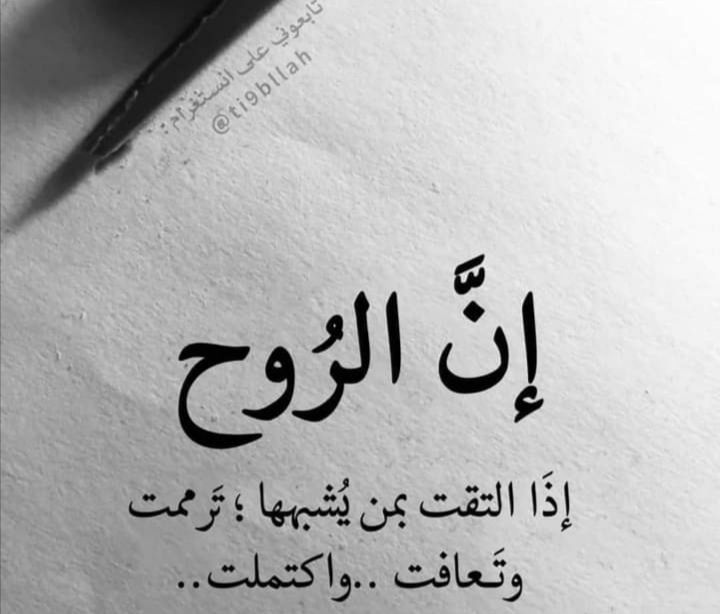 تابعوني على انستغرام:
@ti9bllah
إنَّ الرُوح
إذَا التقت بمن يُشبهها ؛ تَرممت
وتَعافت ..واكتملت..